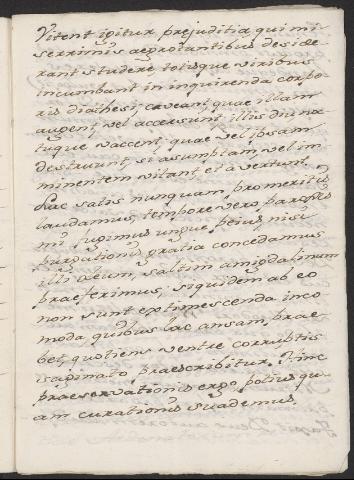 Vitent igitur prejuditia qui mi
serrimis aegrotantibus deside
rant studere totisque viribus
incumbant in inquirenda corpo
ris diathesi, caveant quae illam
augent, vel accersunt illis diu no
tuque vaccent, quae vel ipsam
destruunt, si assumptam, vel im
minentem vitant, et avertunt.
Lac satis nunquam pro meritis
laudamus, tempore vero paroxis
mi fugimus unque peius, nisi
purgationis gratia concedamus
illi oleum, saltim amigdalinum
praeferimus, siquidem ab eo
non sunt extimescenda inco
moda, quibus lac ansam prae
bet, quotiens ventre corruptis
sapinato praescribitur. Hinc
praeservationis ergo, potius qu
am curationis suademus.